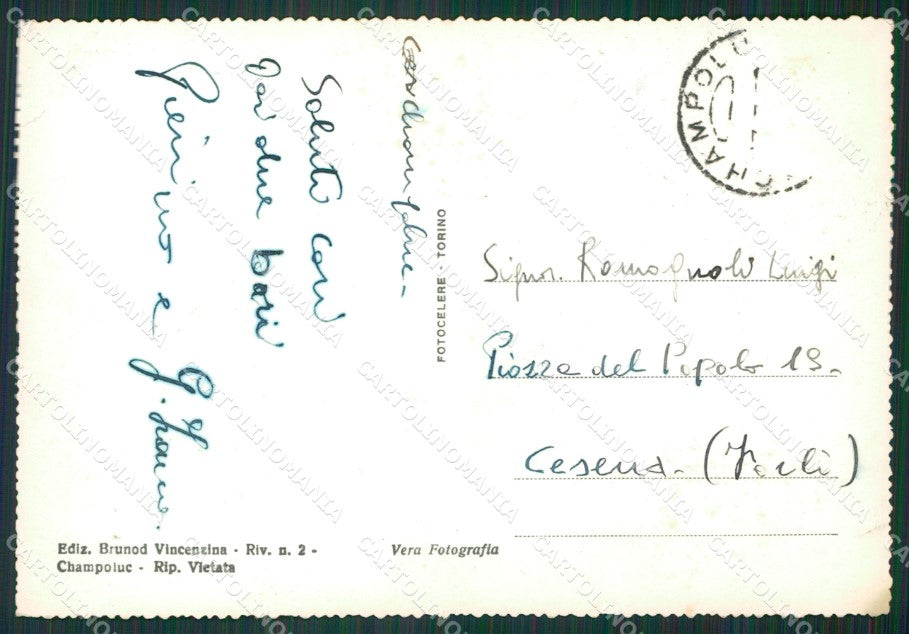 Saluti cari
Voi due bari
Pierino e
G. Franco.
FOTOCELERE - TORINO
CHAMPOLU
Signor. Romagnoli Luigi
Piazza del Popolo 19.
Cesena. (Forlì)
Ediz. Brunod Vincenzina - Riv. n. 2 -
Champoluc - Rip. Vietata
Vera Fotografia
CARTOLINOMANIA